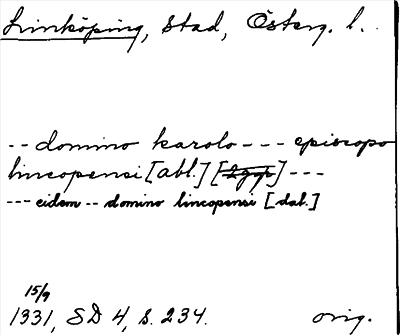 Linköping, stad, Österg. l.
-- domino karolo --- episcopo
lincopensi [abl.] [] ---
--- eidem -- domino lincopensi [dat.]
15/9
1331, SD 4, s. 234. orig.